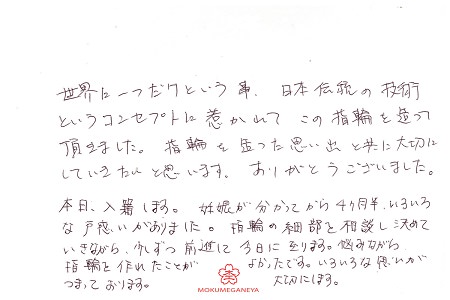 世界に一つだけという事、日本伝統の技術
というコンセプトに惹かれて この指輪を造って
頂きました。指輪を造った思い出と共に大切に
していきたいと思います。ありがとうございました。
本日、入籍します。妊娠が分かってから4ヶ月半、いろいろ
な戸惑いがありました。指輪の細部を相談し決めて
いきながら、少しずつ前進して今日に至ります。悩みながら
指輪を作れたことが よかったです。いろいろな思いが
つまっております。 大切にします。
MOKUMEGANEYA